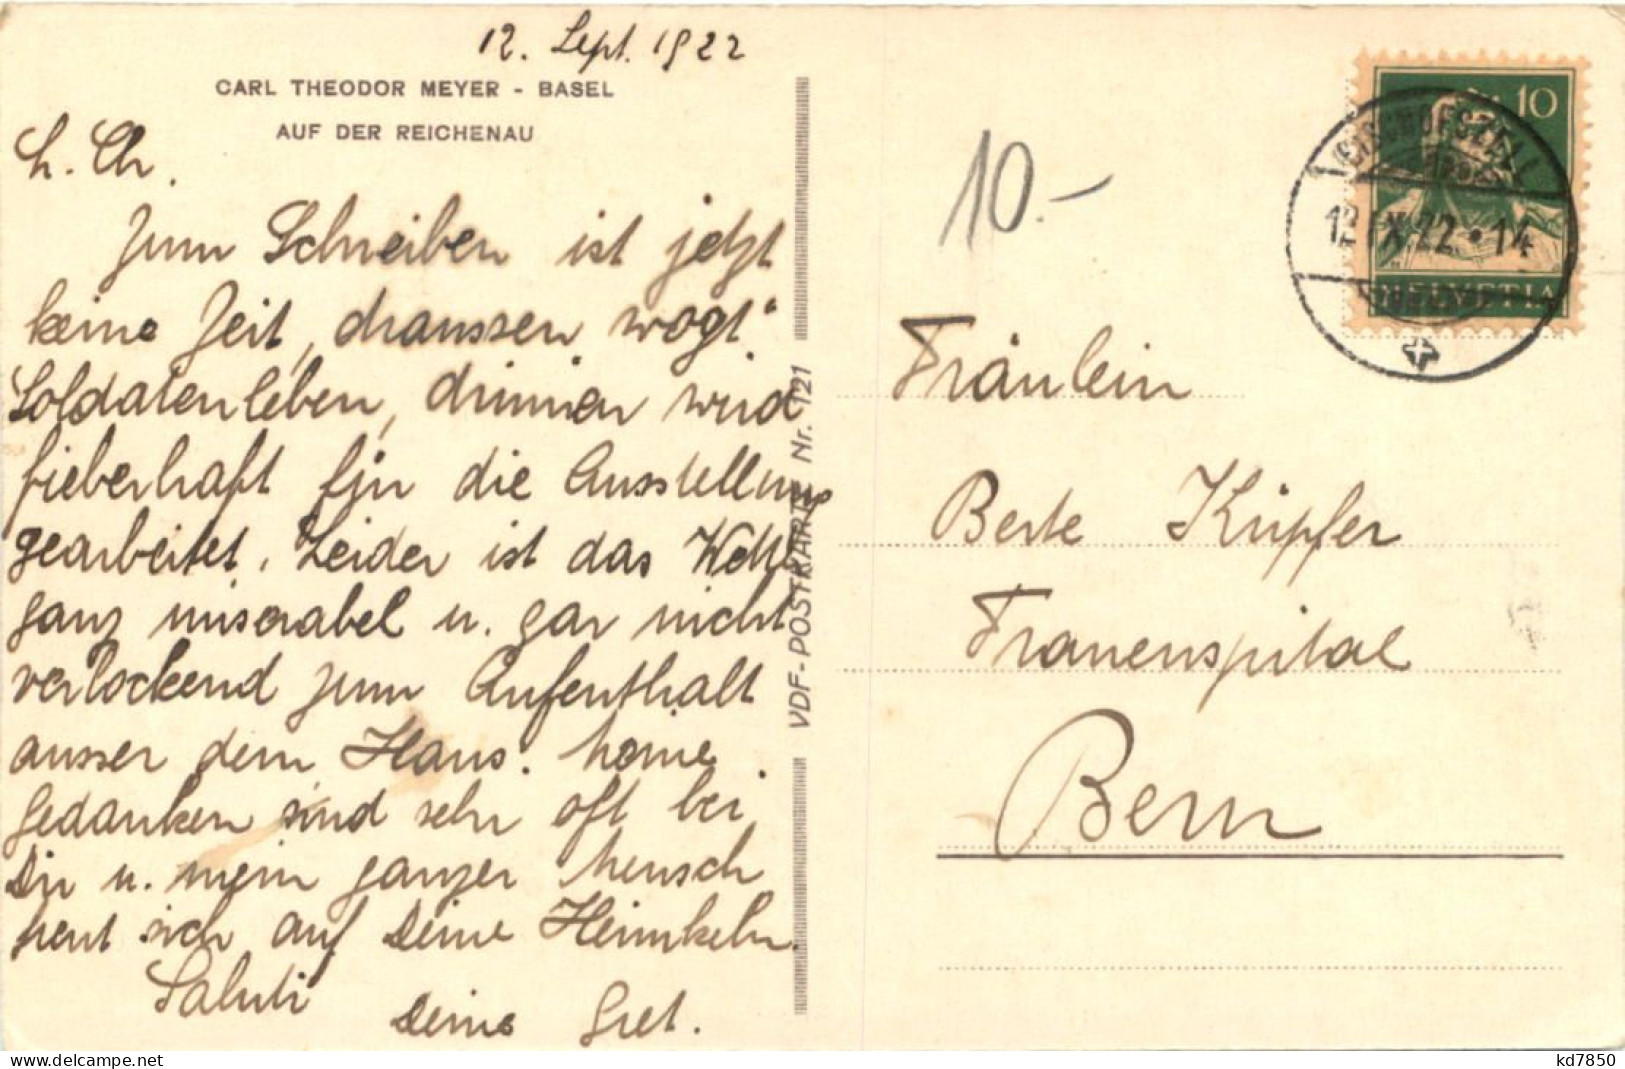 12. Sept. 1922
CARL THEODOR MEYER - BASEL
AUF DER REICHENAU
L. Ch.
Zum Schreiben ist jetzt
keine Zeit, draussen wogt"
Soldatenleben, drinnen wird
fieberhaft für die Ausstellung
gearbeitet. Leider ist das Wetter
ganz miserabel u. gar nicht
verlockend zum Aufenthalt
ausser dem Haus. Meine
Gedanken sind sehr oft bei
Dir u. mein ganzer Mensch
freut sich auf Deine Heimkehr.
Saluti
Deine Gret.
VDF-POSTKARTE Nr. 121
10.-
10
HELVETIA
BISCHOFSZELL
12 IX 22 • 14
Fräulein
Berte Küpfer
Frauenspital
Bern
kd7850